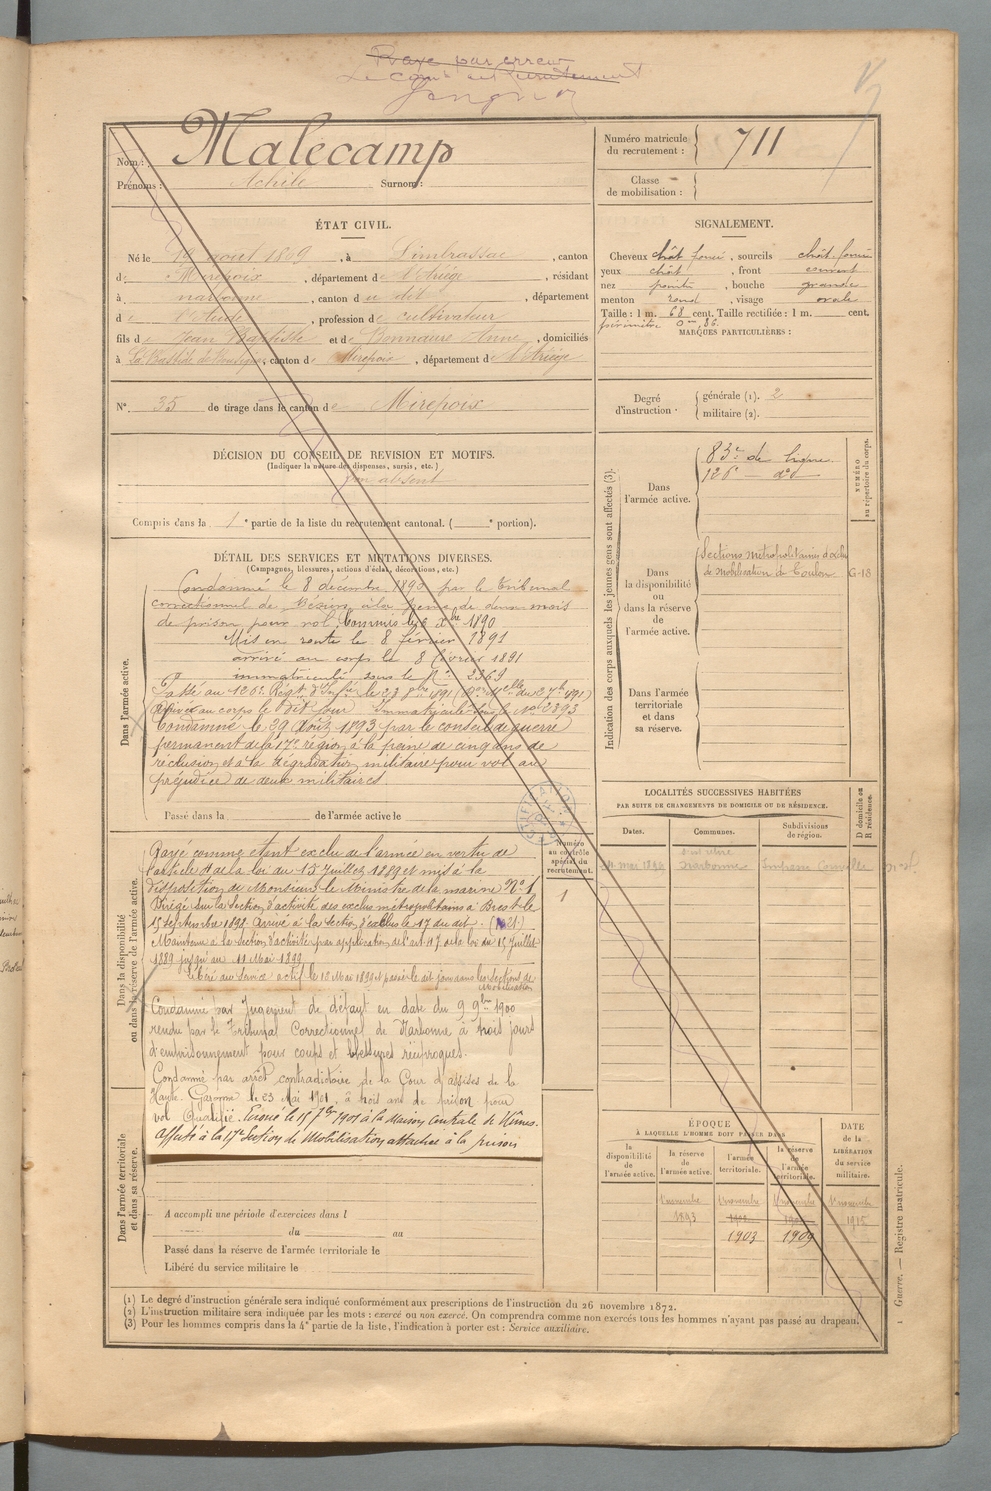 Rayé par erreur
Le Comt du Recrutement
Nom : Malecamp
Prénoms : Achile Surnom :
Numéro matricule du recrutement : 711
Classe de mobilisation :
ÉTAT CIVIL.
Né le 19 août 1869, à Limbrassac, canton
de Mirepoix, département de l'Ariège, résidant
à narbonne, canton du dit, département
de l'Aude, profession de cultivateur
fils de Jean Baptiste et de Bonnaure Anne, domiciliés
à La Bastide de Bousignac, canton de Mirepoix, département de l'Ariège
N° 35 de tirage dans le canton de Mirepoix
SIGNALEMENT.
Cheveux chât foncé, sourcils chât. foncé
yeux chât, front couvert
nez pointu, bouche grande
menton rond, visage ovale
Taille : 1 m. 68 cent. Taille rectifiée : 1 m. cent.
périmètre 0m,86.
MARQUES PARTICULIÈRES :
Degré d'instruction.
générale (1). 2
militaire (2).
DÉCISION DU CONSEIL DE REVISION ET MOTIFS.
(Indiquer la nature des dispenses, sursis, etc.)
bon absent
Compris dans la 1e partie de la liste du recrutement cantonal. ( e portion).
DÉTAIL DES SERVICES ET MUTATIONS DIVERSES.
(Campagnes, blessures, actions d'éclat, décorations, etc.)
Dans l'armée active.
Condamné le 8 décembre 1890 par le Tribunal
correctionnel de Béziers à la peine de deux mois
de prison pour vol, Commis le 6 Xbre 1890
Mis en route le 8 février 1891
arrivé au corps le 8 février 1891
immatriculé sous le N° 2369
Passé au 126e Régt d'Infie le 23 8bre 1891
Arrivé au corps le Dit jour Immatriculé sous le No 2893
Condamné le 29 Août 1893 par le conseil de guerre
permanent de la 17e région à la peine de cinq ans de
réclusion et à la dégradation militaire pour vol au
préjudice de deux militaires.
Passé dans la de l'armée active le
Dans la disponibilité ou dans la réserve de l'armée active.
Rayé comme étant exclu de l'armée en vertu de
l'article 4 de la loi du 15 Juillet 1889 et mis à la
disposition de Monsieur le Ministre de la marine N° 1
Dirigé sur la Section d'activité des exclus métropolitains à Brest le
15 septembre 1898. Arrivé à la Section d'exclus le 17 du dit.
Maintenu à la Section d'activité par application de l'art. 17 de la loi du 15 Juillet
1889 jusqu'au 11 Mai 1899
Libéré du Service actif le 12 Mai 1899 et passé le dit jour dans les Sections de
mobilisation
Condamné par Jugement de défaut en date du 9 9bre 1900
rendu par le Tribunal Correctionnel de Narbonne à trois jours
d'emprisonnement pour coups et blessures réciproques.
Condamné par arrêt contradictoire de la Cour d'assises de la
Haute-Garonne le 23 Mai 1901, à trois ans de prison pour
vol Qualifié. Ecroué le 15 7bre 1901 à la Maison Centrale de Nîmes.
Affecté à la 17e Section de Mobilisation attachée à la prison
Numéro au contrôle spécial du recrutement.
1
Dans l'armée territoriale et dans sa réserve.
A accompli une période d'exercices dans l
du au
Passé dans la réserve de l'armée territoriale le
Libéré du service militaire le
Indication des corps auxquels les jeunes gens sont affectés (3).
Dans l'armée active.
83e de ligne.
126e do
NUMÉRO au répertoire du corps.
Dans la disponibilité ou dans la réserve de l'armée active.
Sections métropolitaines d'exclus
de mobilisation à Toulon G-18
Dans l'armée territoriale et dans sa réserve.
LOCALITÉS SUCCESSIVES HABITÉES
PAR SUITE DE CHANGEMENTS DE DOMICILE OU DE RÉSIDENCE.
Dates. Communes. Subdivisions de région. D domicile ou R résidence.
mai 1899 Narbonne
ÉPOQUE
À LAQUELLE L'HOMME DOIT PASSER DANS
la disponibilité de l'armée active. la réserve de l'armée active. l'armée territoriale. la réserve de l'armée territoriale.
DATE de la LIBÉRATION du service militaire.
1 novembre 1 novembre 1 novembre 1 novembre
1893 1915
1903 1909
(1) Le degré d'instruction générale sera indiqué conformément aux prescriptions de l'instruction du 26 novembre 1872.
(2) L'instruction militaire sera indiquée par les mots : exercé ou non exercé. On comprendra comme non exercés tous les hommes n'ayant pas passé au drapeau.
(3) Pour les hommes compris dans la 4e partie de la liste, l'indication à porter est : Service auxiliaire.
Guerre. — Registre matricule.